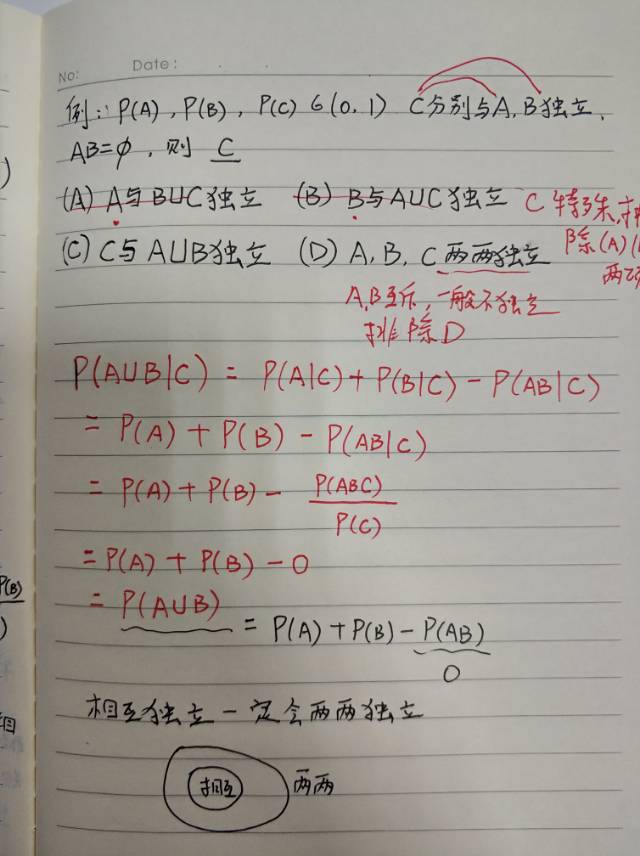 No:
Date:
例: P(A), P(B), P(C) ∈ (0, 1) C分别与A, B独立,
AB=∅, 则 C
(A) A与B∪C独立 (B) B与A∪C独立
C特殊, 排
除(A)(
两项
(C) C与A∪B独立 (D) A, B, C两两独立
A,B互斥, 一般不独立
排除D
P(A∪B|C) = P(A|C) + P(B|C) - P(AB|C)
= P(A) + P(B) - P(AB|C)
= P(A) + P(B) - P(ABC)/P(C)
= P(A) + P(B) - 0
= P(A∪B)
= P(A) + P(B) - P(AB)
0
相互独立一定会两两独立
相互 两两
P(B)
)
相